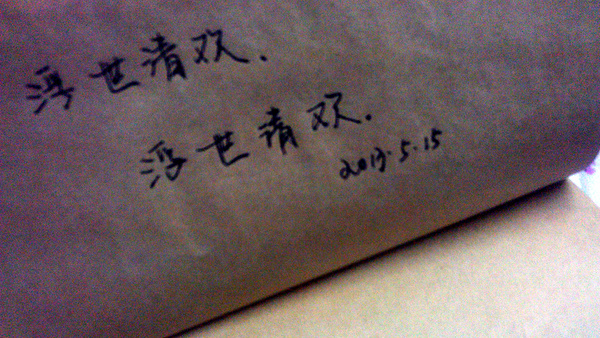 浮世清欢.
浮世清欢.
2013.5.15